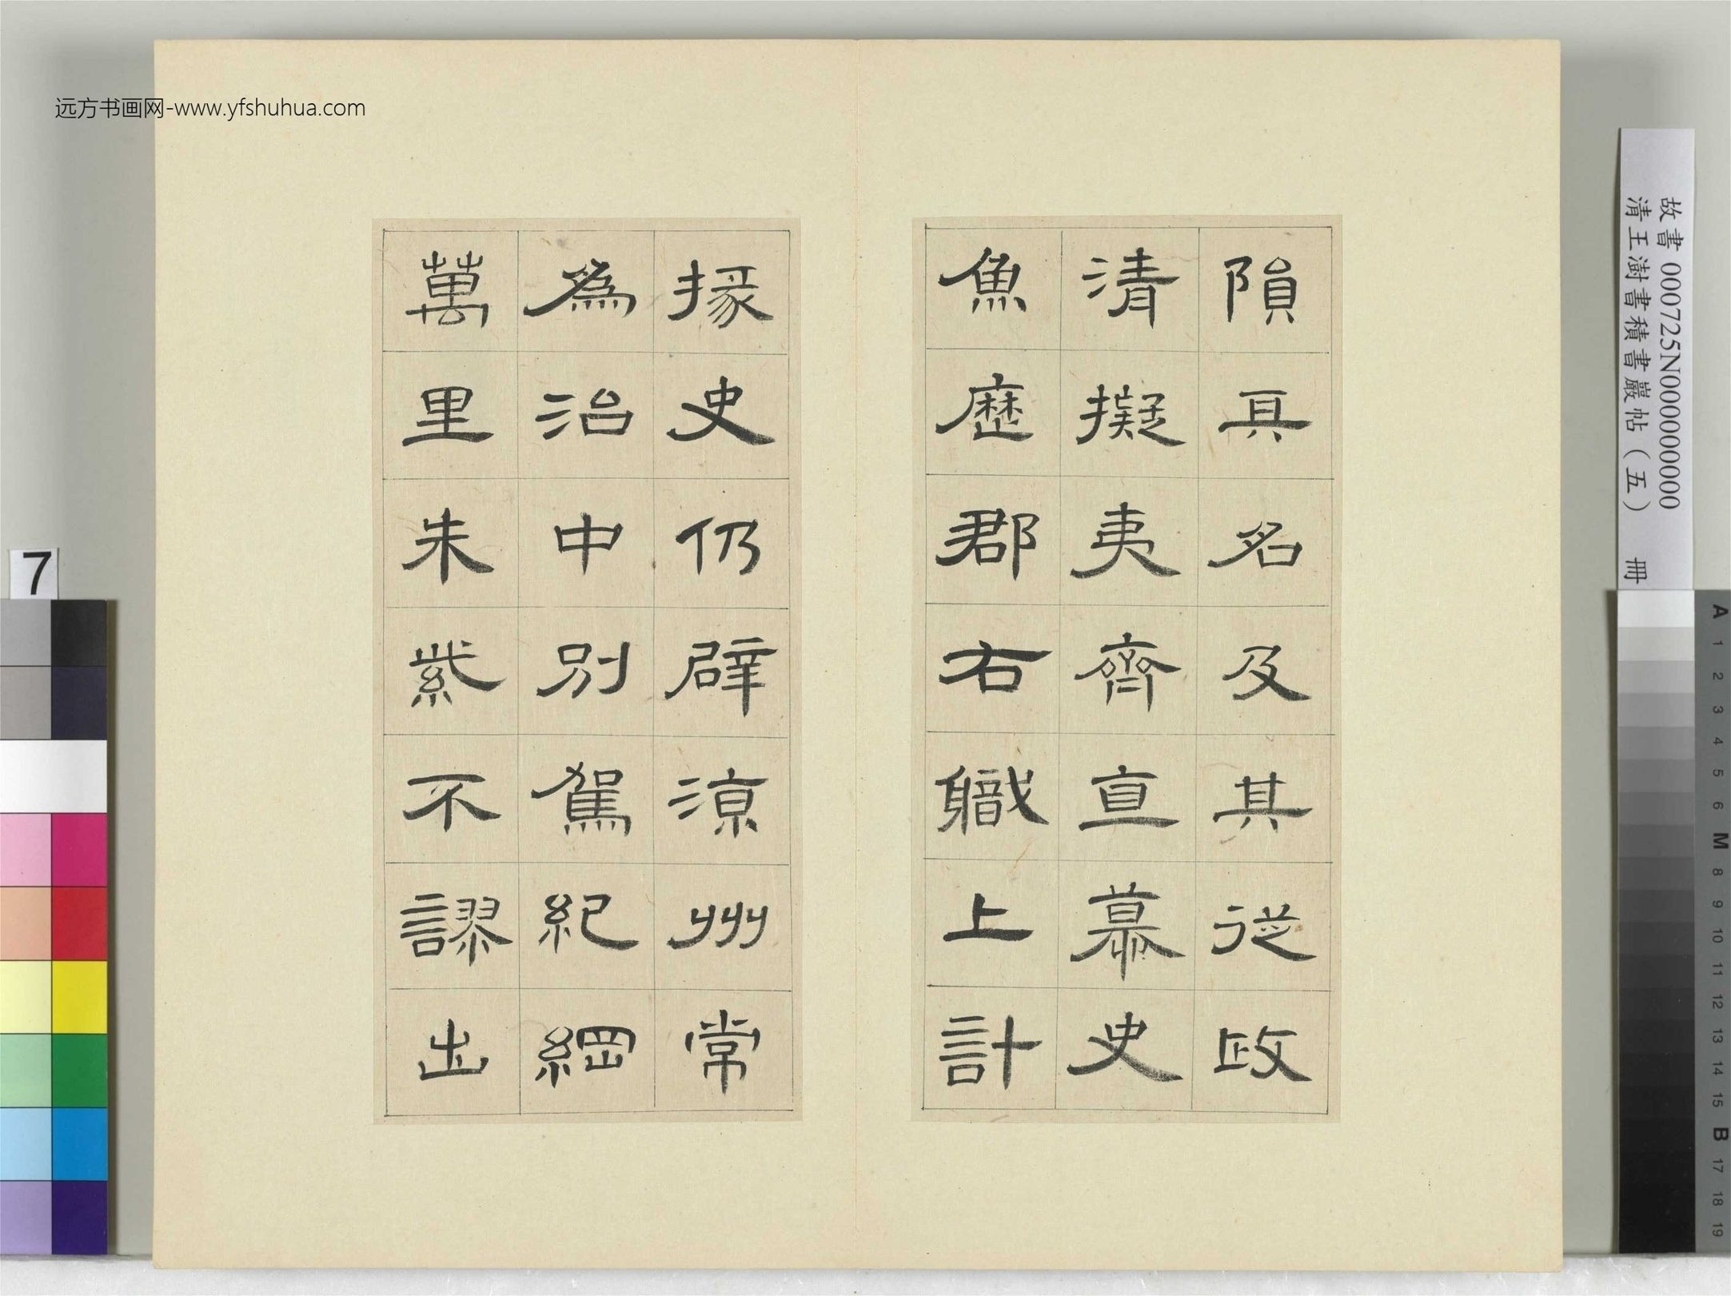 远方书画网-www.yfshuhua.com
隕其名及其從政
清擬夷齊直慕史
魚歷郡右職上計
掾史仍辟涼州常
為治中別駕紀綱
萬里朱紫不謬出
故書 000725N000000000
清王澍書積書巖帖（五） 冊
7
A
1
2
3
4
5
6
M
8
9
10
11
12
13
14
15
B
17
18
19